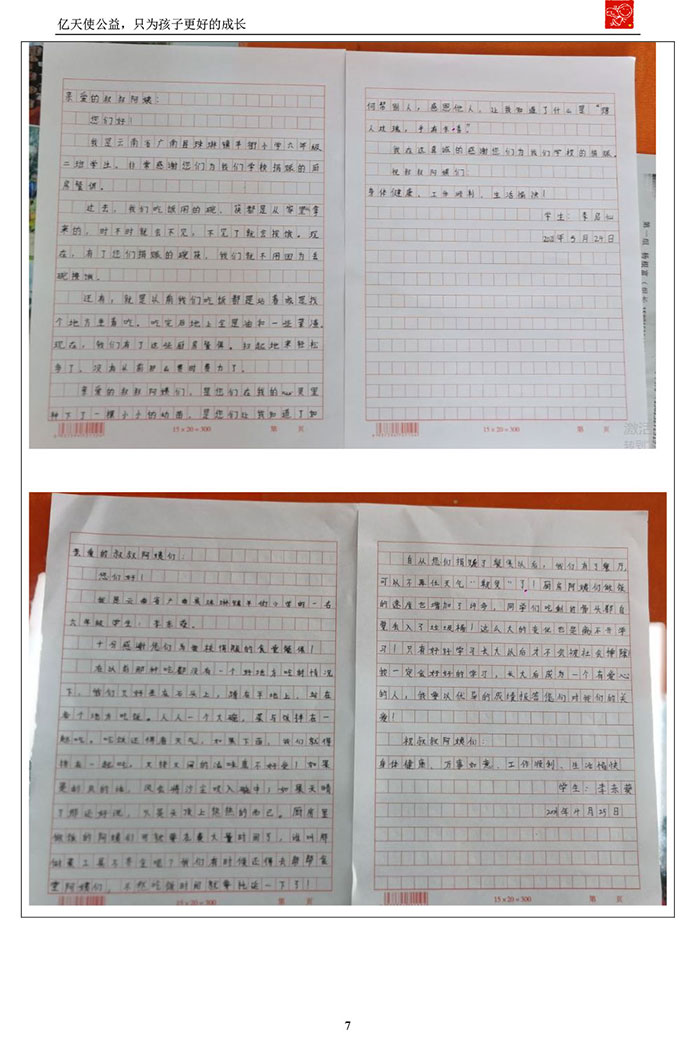 亿天使公益，只为孩子更好的成长
亲爱的叔叔阿姨：
您们好！
我是云南省广南县珠琳镇平街小学六年级
二班学生。非常感谢您们为我们学校捐赠的厨
房餐俱。
过去，我们吃饭用的碗、筷都是从家里拿
来的，时不时就会不见，不见了就会挨饿。现
在，有了您们捐赠的碗筷，我们就不用因为丢
碗挨饿。
还有，就是从前我们吃饭都是站着或是找
个地方坐着吃，吃完后地上全是油和一些菜渣。
现在，我们有了这些厨房餐俱。扫起地来轻松
多了，没有从前那么费时费力了。
亲爱的叔叔阿姨们，是您们在我的灵里
种下了一棵小小的幼苗，是您们让我知道了如
何帮别人，感恩他人。让我知道了什么是“赠
人玫瑰，手有余香”
我在这真诚的感谢您们为我们学校的捐赠。
祝叔叔阿姨们：
身体健康、工作顺利、生活愉快！
学生：李
5月24日
15×20=300 第 页
15×20=300 第 页
第一组
亲爱的叔叔阿姨们：
您们好！
我是云南省广南县珠琳镇平街小学的一名
六年级学生，李
十分感谢您们为学校捐赠的食堂餐俱！
在从前那种吃都没有一个好地方吃的情况
下，我们只好坐在石头上，蹲在平地上，站在
各个地方吃饭。人人一个大碗，菜与饭拌在一
起吃。吃饭还得看天气，如果下雨，我们就得
挤在一起吃，大挤大闹的滋味真不好受！如果
是刮风的话，风会将沙尘吹入碗中；如果天晴
了那还好说，火辣头顶上悠悠的而已。厨房里
做饭的阿姨们可就要花费大量时间了，谁叫那
时候工具不齐全呢？我们有时候还得去帮帮食
堂阿姨们，不然吃饭时间就要拖延一下了！
自从您们捐赠了餐俱以后，我们有了餐厅，
可以不再任天气“耍”了！厨房阿姨们做饭
的速度也增加了许多，同学们吃剩的骨头都自
觉丢入了垃圾桶！这么大的变化也是离不开学
习！只有好好学习长大以后才不会被社会
我一定会好好的学习，长大后成为一个有爱心
的人，我要以优异的成绩报答您们对我们的关
爱！
祝叔叔阿姨们：
身体健康、万事如意、工作顺利、生活愉快
学生：李
4月25日
15×20=300 第 页
15×20=300 第 页
7